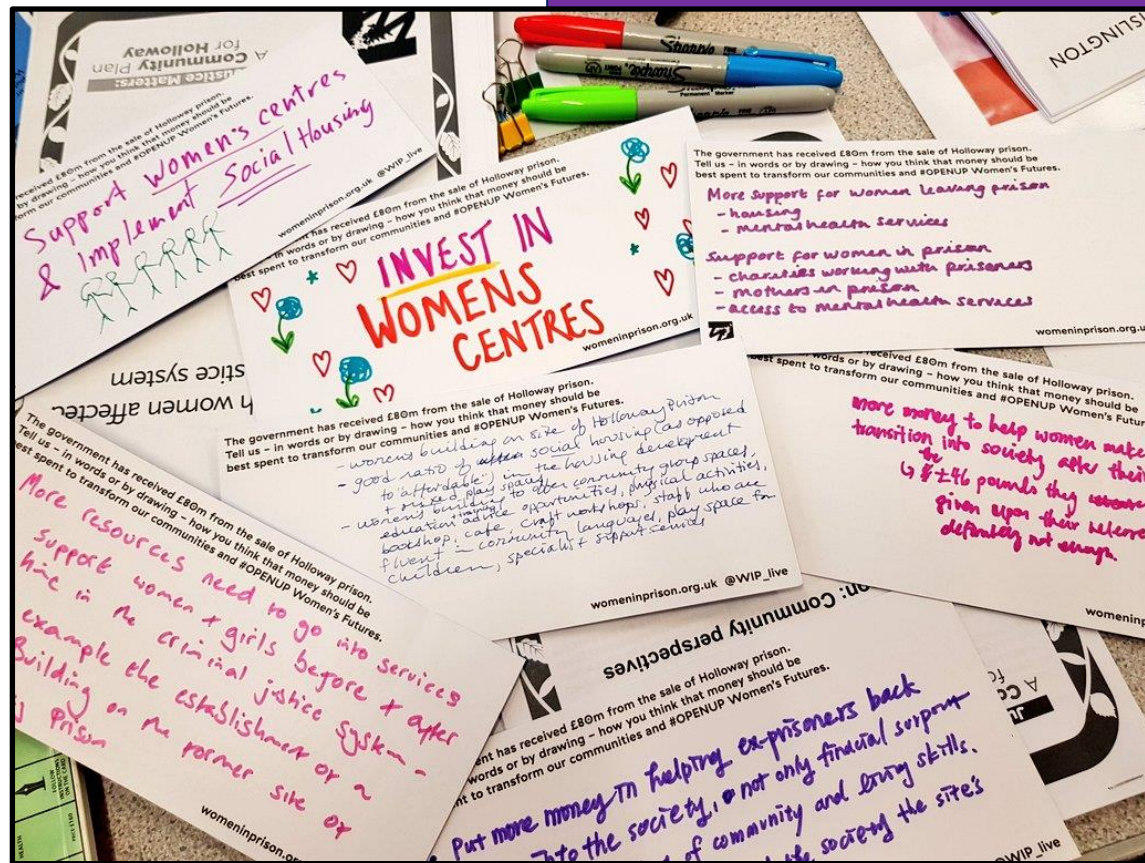 A Community Plan
for Holloway
Justice Matters:
received £80m from the sale of Holloway prison.
by drawing – how you think that money should be
form our communities and #OPENUP Women's Futures.
Support women's centres
& Implement Social Housing
womeninprison.org.uk @WIP_live
Sharpie
Sharpie
ISLINGTON
ent has received £80m from the sale of Holloway prison.
in words or by drawing – how you think that money should be
best spent to transform our communities and #OPENUP Women's Futures.
INVEST IN
WOMENS
CENTRES
womeninprison.org.uk
The government has received £80m from the sale of Holloway prison.
Tell us – in words or by drawing – how you think that money should be
best spent to transform our communities and #OPENUP Women's Futures.
More support for women leaving prison
- housing
- mental health services
Support for women in prison
- charities working with prisoners
- mothers in prison
- access to mental health services
womeninprison.org.u
stice system
h women affected
The government has received £80m from the sale of Holloway prison.
Tell us – in words or by drawing – how you think that money should be
best spent to transform our communities and #OPENUP Women's Futures.
- women's building on site of Holloway Prison
- good ratio of social housing (as opposed
to 'affordable') in the housing development
+ mixed play spaces
- women's building to offer community group spaces,
education + training advice opportunities, physical activities,
bookshop, cafe, craft workshops, staff who are
fluent in community languages, play space for
children, specialist support services
womeninprison.org.uk @WIP_live
received £80m from the sale of Holloway prison.
words or by drawing – how you think that money should be
best spent to transform our communities and #OPENUP Women's Futur
more money to help women make
transition into society after their
the £46 pounds they
given upon their release
definitely not enough.
womeninp
The government has received £80m from the sale of Holloway prison.
Tell us – in words or by drawing – how you think that money should be
best spent to transform our communities and #OPENUP Women's Futures.
More resources need to go into services
support women + girls before + after
time in the criminal justice system -
example the establishment of a
Building on the former site of
Prison
womeninprison.or
on: Community perspectives
ent has received £80m from the sale of Holloway prison.
words or by drawing – how you think that money should be
nt to transform our communities and #OPENUP Women's Futures.
Put more money in helping ex-prisoners back
into the society, not only financial support
of community and living skills.
society the site's
WIP_live
FOLLOW
INSTRUCTIONS
ON THE CARD
HEALTH